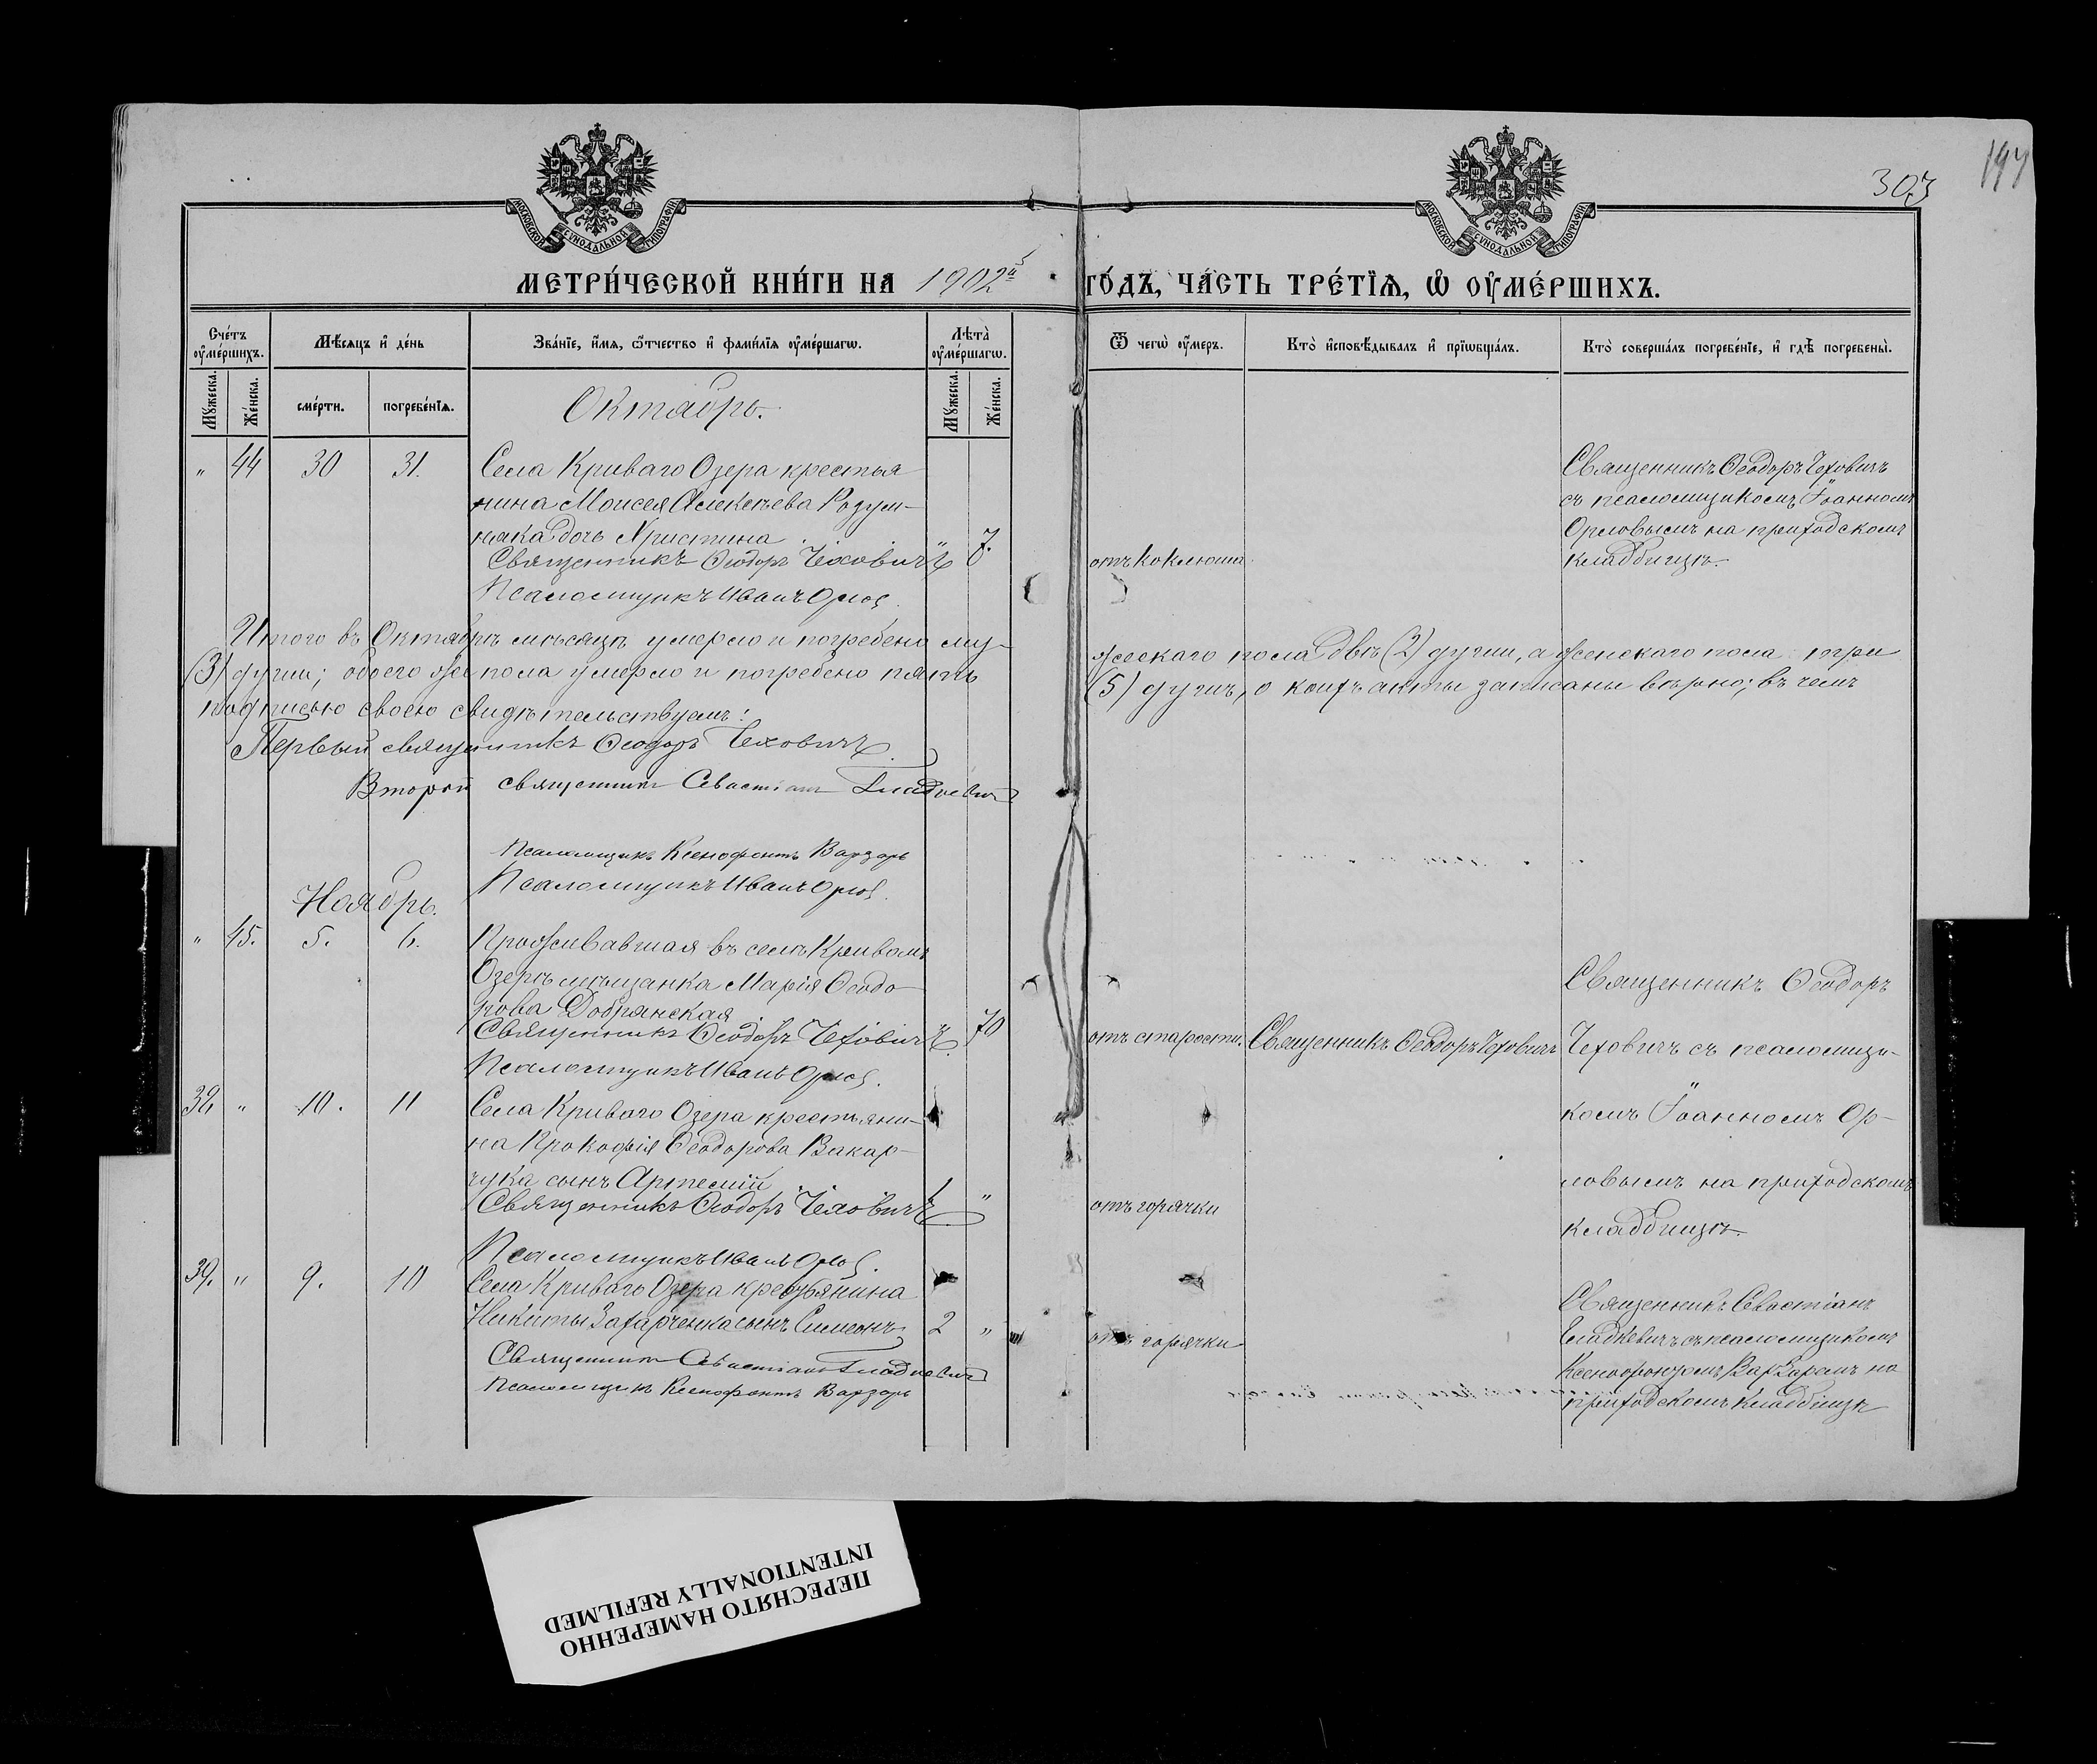 197
303
МОСКОВСКОЙ СѴНОДАЛЬНОЙ ТИПОГРАФІИ
МОСКОВСКОЙ СѴНОДАЛЬНОЙ ТИПОГРАФІИ
МЕТРИ́ЧЕСКОЙ КНИ́ГИ НА 1902й ГО́ДЪ, ЧА́СТЬ ТРЕ́ТЇѦ, Ѡ҆ ОУ҆МЕ́РШИХЪ.
Сче́тъ оу҆ме́ршихъ.
Мѣ́сяцъ и҆ де́нь
Зва́нїе, и҆́мя, ѻ҆́тчество и҆ фами́лїя оу҆ме́ршагѡ.
Лѣта̀ оу҆ме́ршагѡ.
Ѿ чегѡ̀ оу҆́меръ.
Кто̀ и҆сповѣ́дывалъ и҆ прїѡбща́лъ.
Кто̀ соверша́лъ погребе́нїе, и҆ гдѣ̀ погребены̀.
Мꙋ́жеска.
Же́нска.
сме́рти.
погребе́нїя.
Мꙋ́жеска.
Же́нска.
Октябрь.
" 44 30 31. Села Криваго Озера крестья
нина Моисея Алексѣева Розум-
няка дочь Христина " 7.
Священникъ Ѳеодоръ Чеховичъ
Псаломщикъ Иванъ Орлов
отъ коклюша.
Священникъ Ѳеодоръ Чеховичъ
съ псаломщикомъ Іоанномъ
Орловымъ на приходскомъ
кладбищѣ.
Итого въ Октябрѣ мѣсяцѣ умерло и погребено му-
жескаго пола двѣ (2) души, а женскаго пола три
(3) души; обоего же пола умерло и погребено пять
(5) душъ, о коихъ акты записаны вѣрно; въ чемъ
подписью своею свидѣтельствуемъ:
Первый священникъ Ѳеодоръ Чеховичъ
Второй священник Севастіан Гладкевич
Псаломщикъ Ксенофонтъ Варзарь
Псаломщикъ Иванъ Орлов.
Ноябрь.
" 45. 5. 6. Проживавшая въ селѣ Кривомъ
Озерѣ мѣщанка Марія Ѳеодо-
рова Добрянская 70
Священникъ Ѳеодоръ Чеховичъ
Псаломщикъ Иванъ Орлов.
отъ старости. Священникъ Ѳеодоръ Чеховичъ
Священникъ Ѳеодоръ
Чеховичъ съ псаломщи-
комъ Іоанномъ Ор-
ловымъ на приходскомъ
кладбищѣ.
38. " 10. 11 Села Криваго Озера крестьяни-
на Прокофія Ѳеодорова Вакар-
чука сынъ Артемій 1 "
Священникъ Ѳеодоръ Чеховичъ
Псаломщикъ Иванъ Орлов.
отъ горячки
39. " 9. 10 Села Криваго Озера крестьянина
Никиты Захарченка сынъ Симеонъ 2 "
Священник Севастіан Гладкевич
Псаломщикъ Ксенофонтъ Варзарь
отъ горячки
Священникъ Севастіанъ
Гладкевичъ съ псаломщикомъ
Ксенофонтомъ Варзаремъ на
приходскомъ кладбищѣ
ПЕРЕСНЯТО НАМЕРЕННО
INTENTIONALLY REFILMED